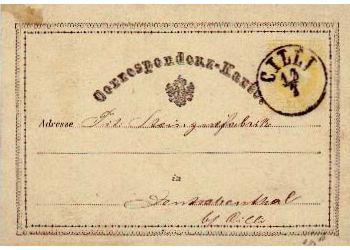 Correspondenz-Karte.
CILLI
13
7
Adresse Die Steingutfabrik
in
bei Cilli